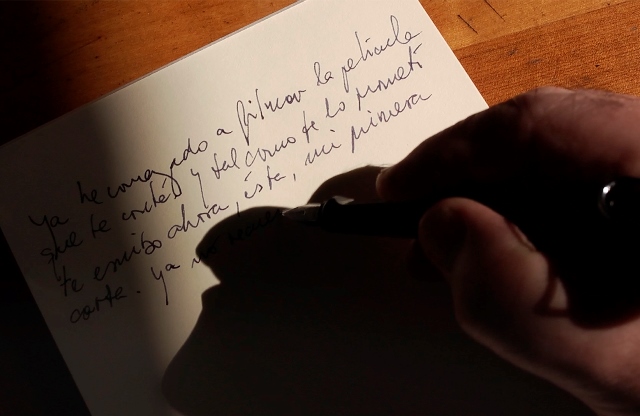 ya he comenzado a filmar la película
que te conté y tal como te lo prometí
te escribo ahora, ésta, mi primera
carta. ya no